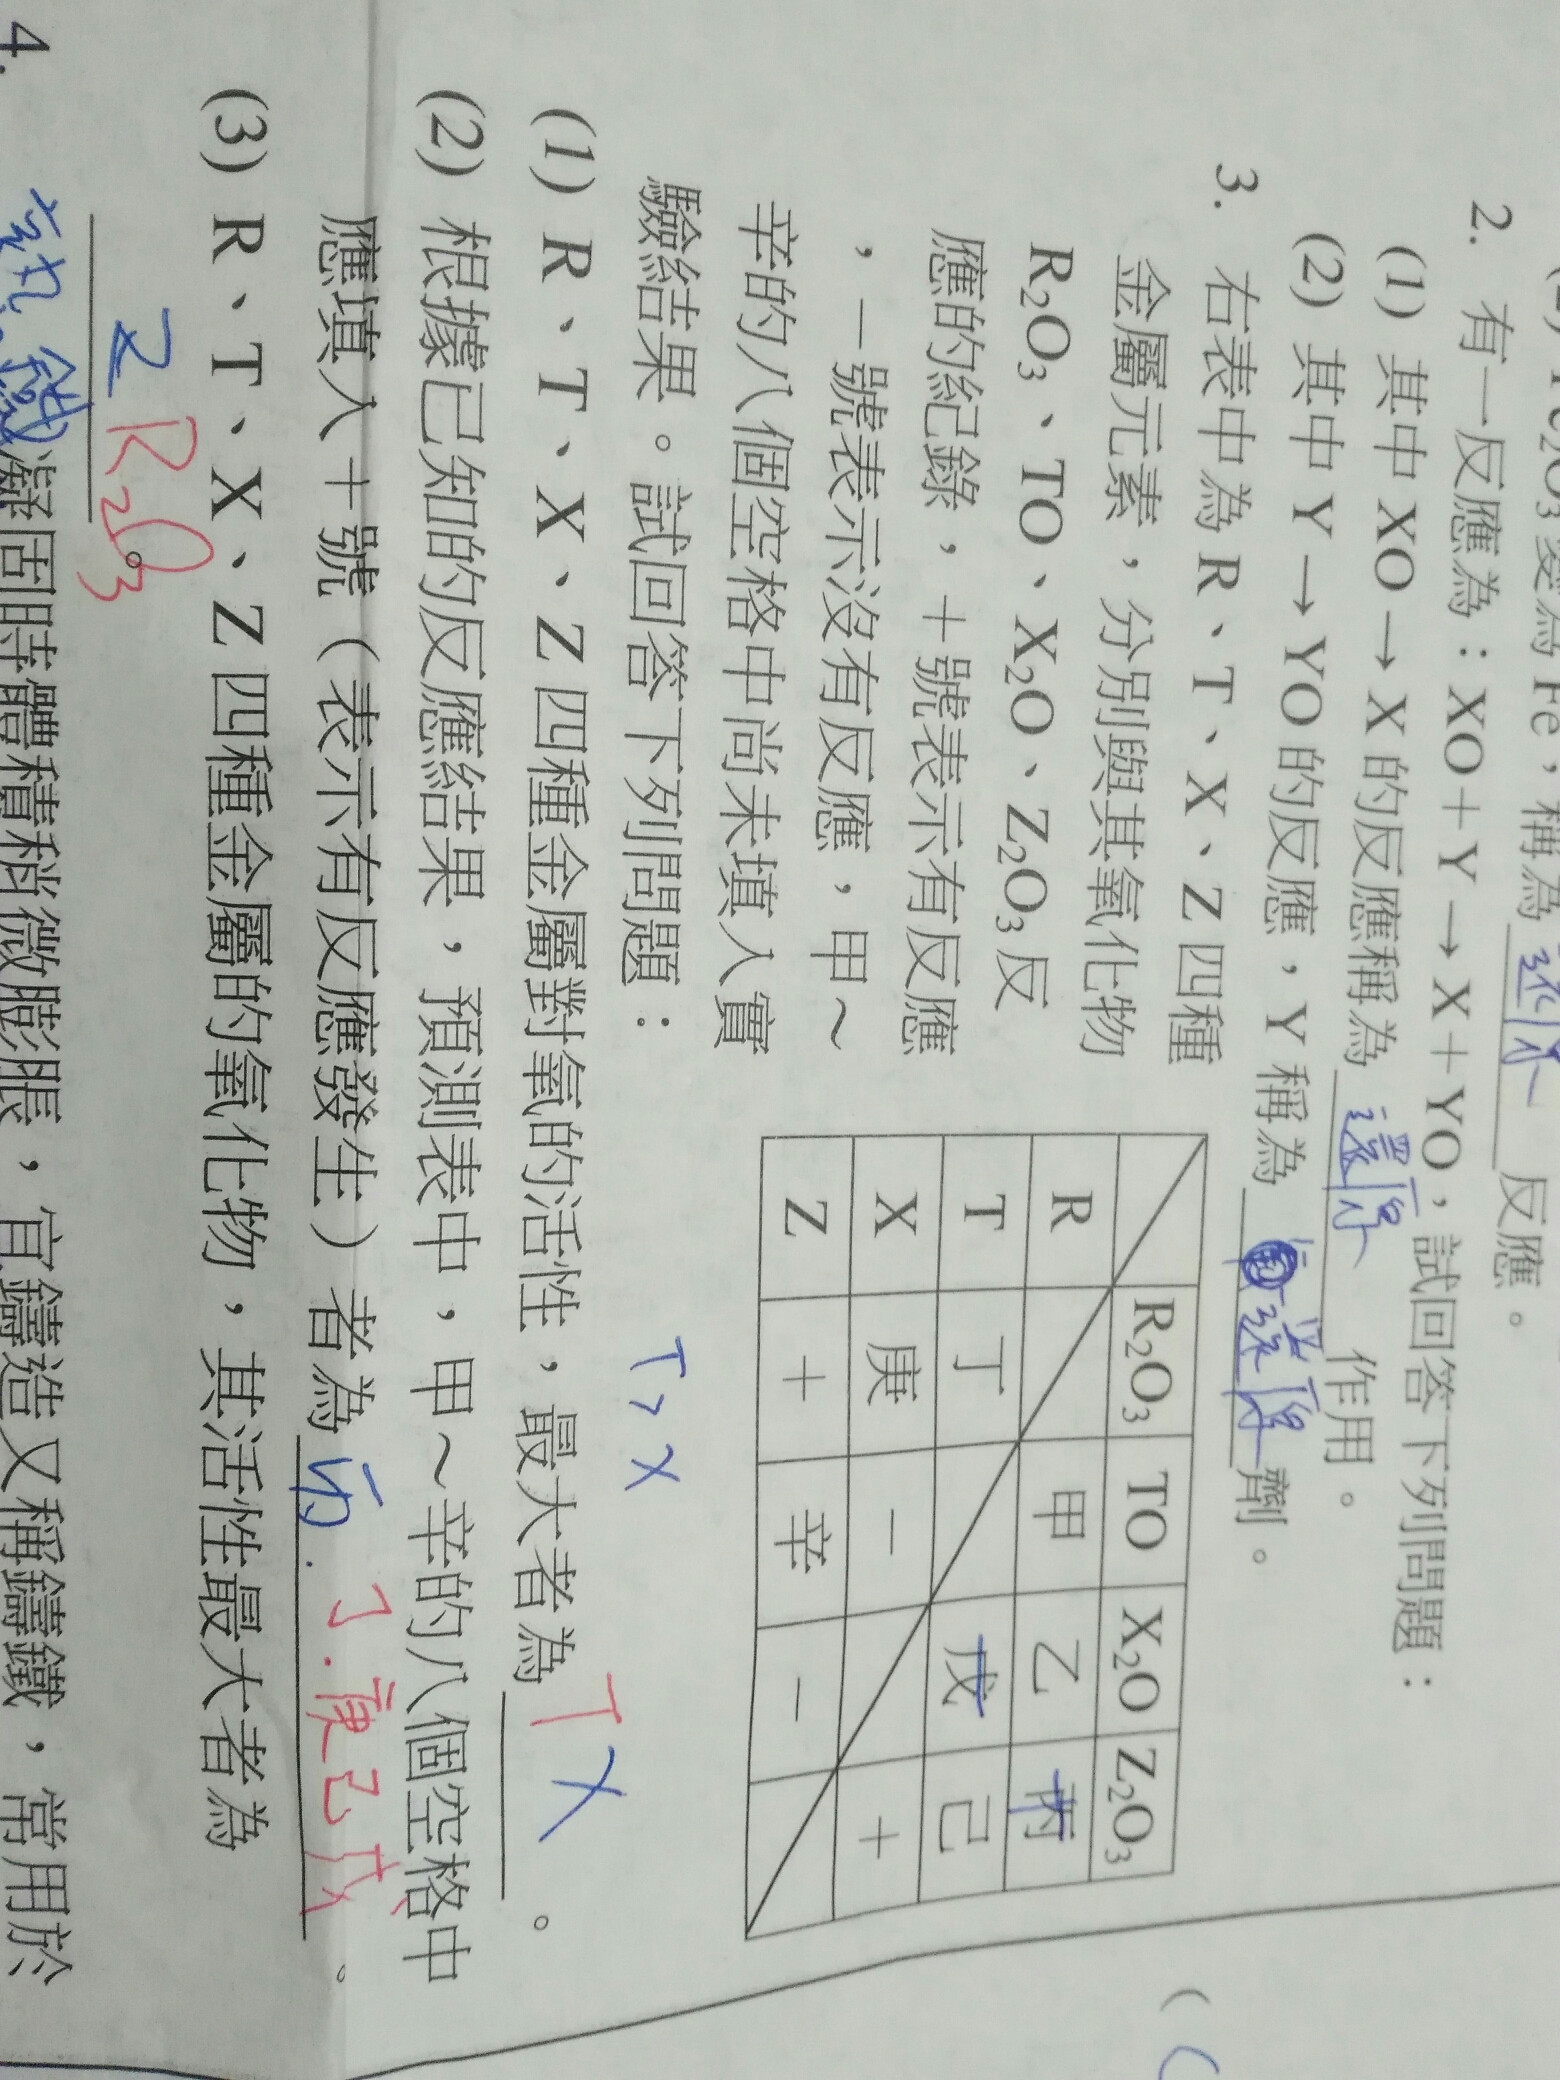 Fe2O3變為Fe,稱為 還原 反應。
2. 有一反應為:XO+Y→X+YO,試回答下列問題:
(1) 其中 XO→X 的反應稱為 還原 作用。
(2) 其中 Y→YO 的反應,Y 稱為 還原 劑。
3. 右表中為 R、T、X、Z 四種
金屬元素,分別與其氧化物
R₂O₃、TO、X₂O、Z₂O₃ 反
應的紀錄,+號表示有反應
,-號表示沒有反應,甲~
辛的八個空格中尚未填入實
驗結果。試回答下列問題:
R₂O₃ TO X₂O Z₂O₃
R 甲 乙 丙
T 丁 戊 己
X 庚 - +
Z + 辛 -
T>X
(1) R、T、X、Z 四種金屬對氧的活性,最大者為 T X 。
(2) 根據已知的反應結果,預測表中,甲~辛的八個空格中
應填入+號(表示有反應發生)者為 丁.庚己戊 。
(3) R、T、X、Z 四種金屬的氧化物,其活性最大者為
Z R₂O₃ 。
4. 鐵凝固時體積稍微膨脹,宜鑄造又稱鑄鐵,常用於